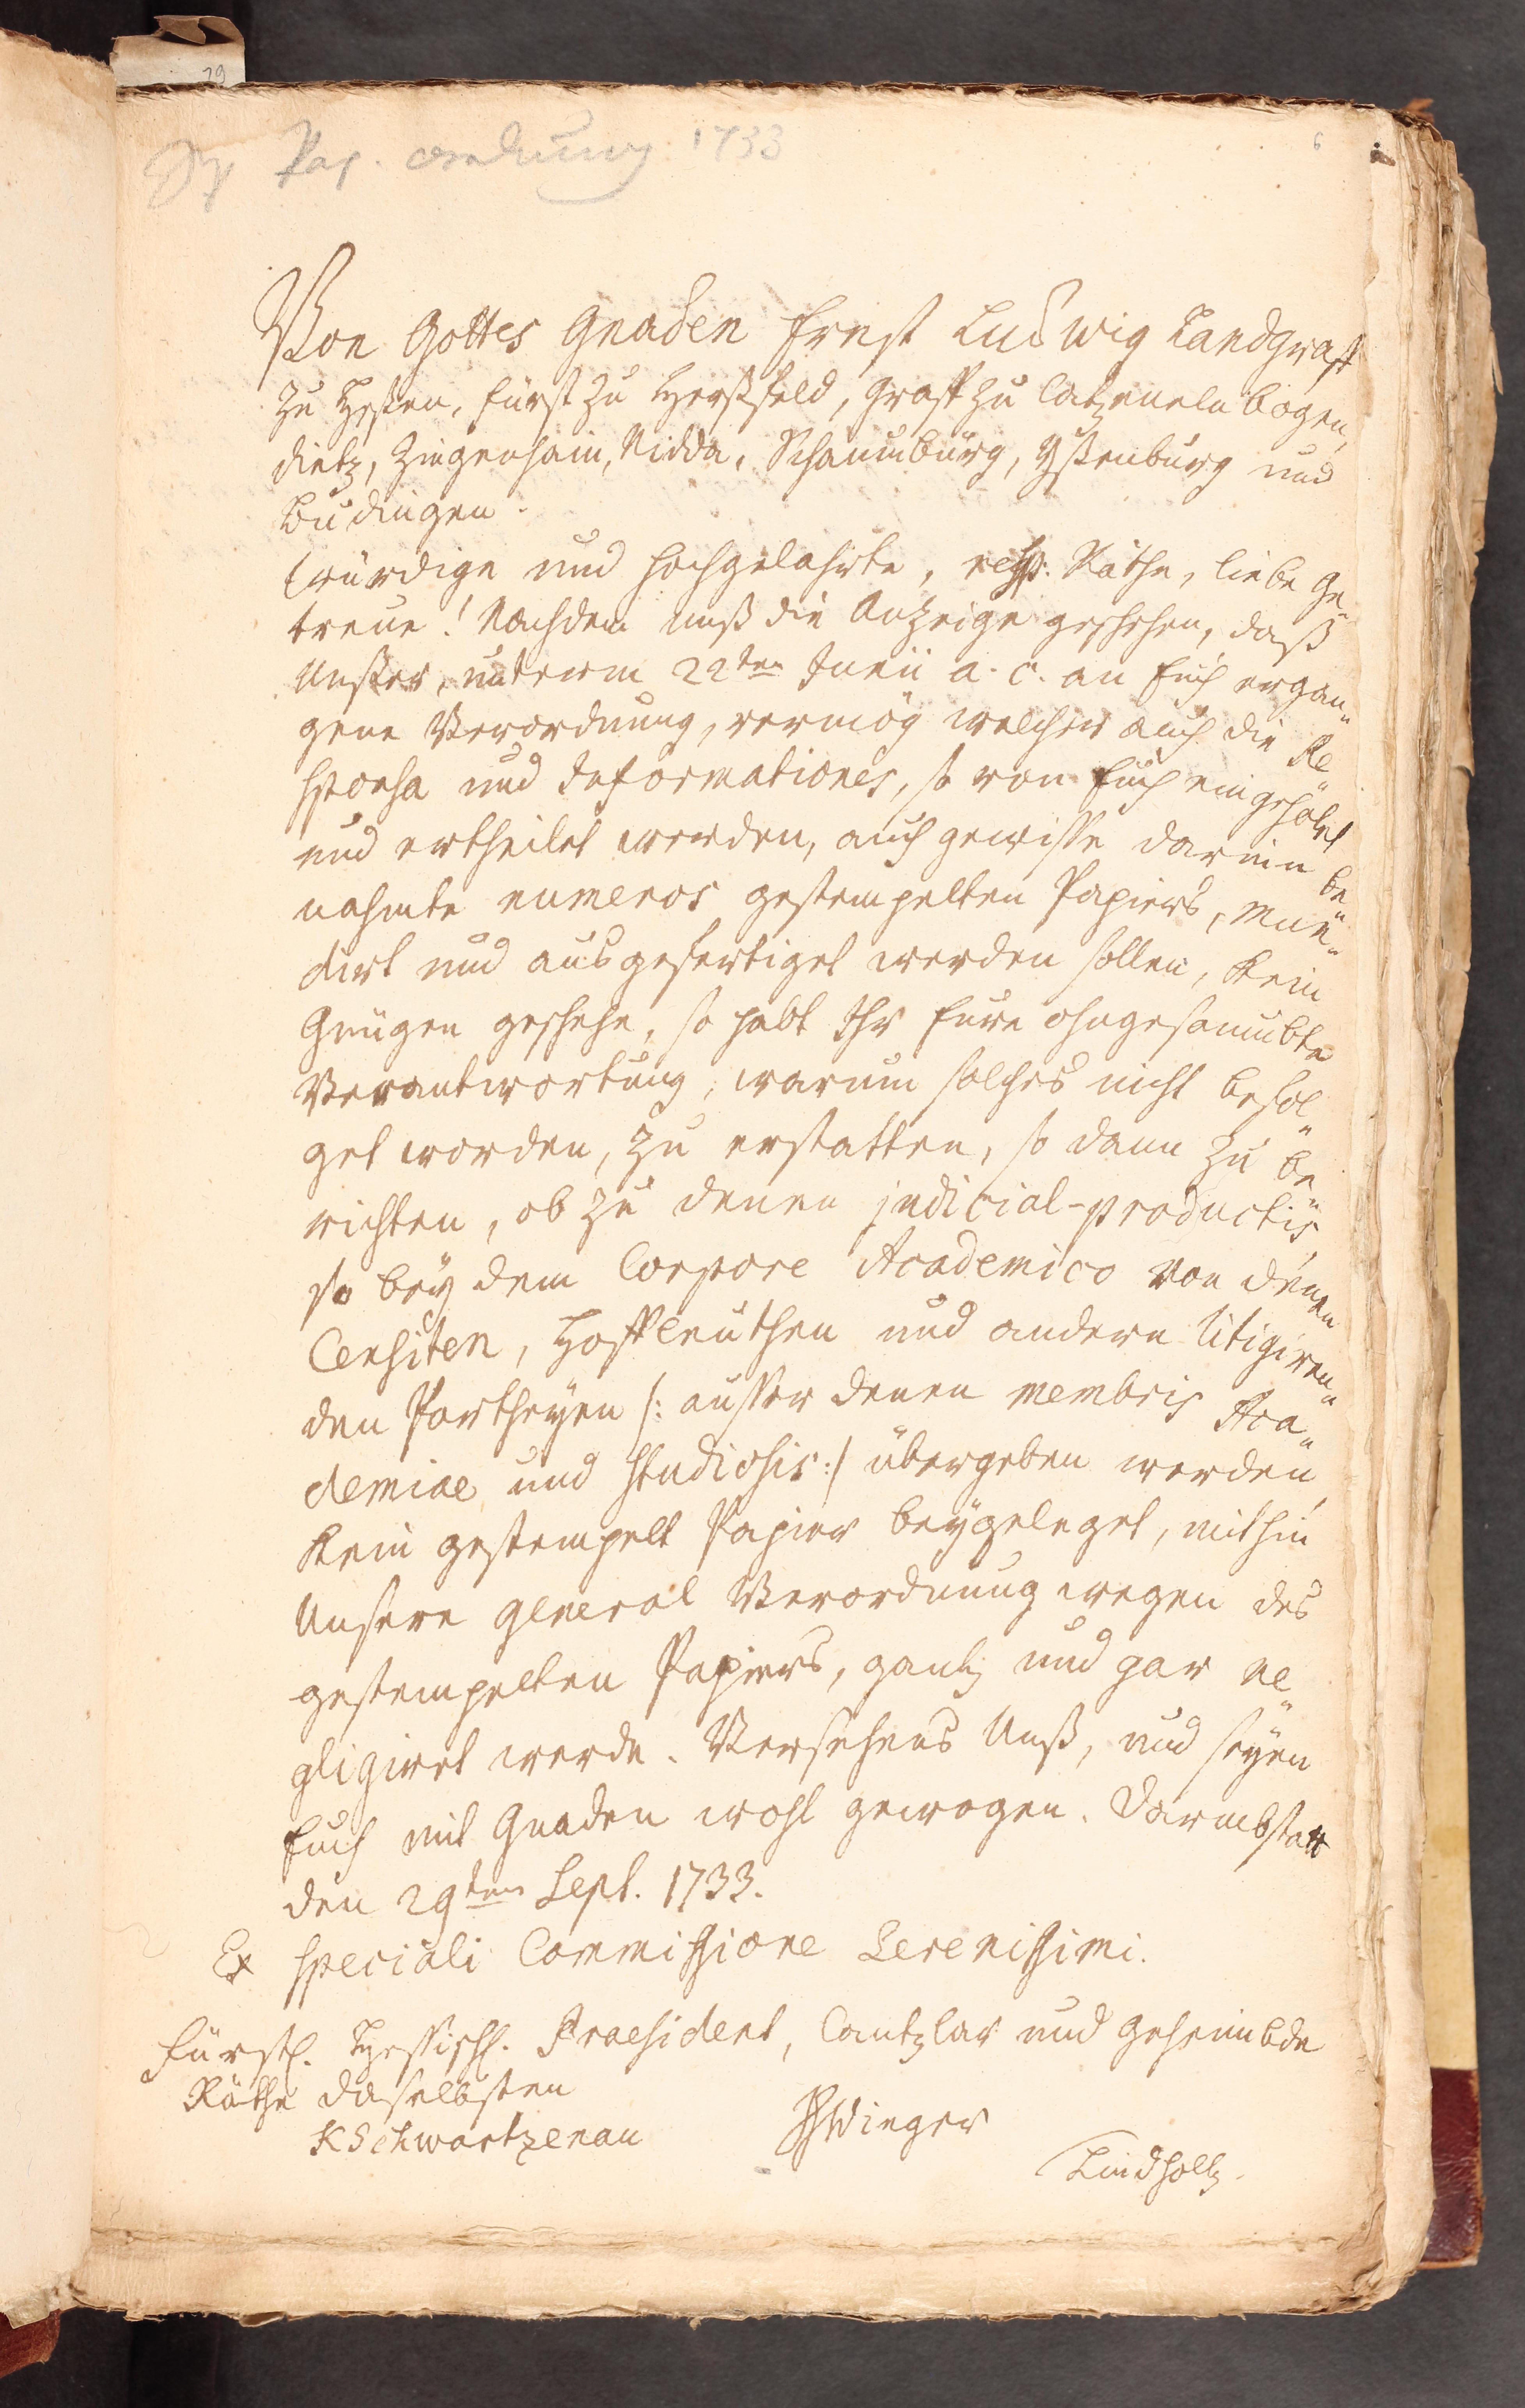 29
Pap. ordnung 1733
6
Von Gottes Gnaden Ernst Ludwig Landgraff
zu Heßen, Fürst zu Herßfeld, Graff zu Catzenelnbogen,
Dietz, Ziegenhain, Nidda, Schaumburg, Yßenburg und
Büdingen.
Würdige und Hochgelahrte, resp: Räthe, liebe Ge„
treue! Nachdem unß die Anzeige geschehen, daß
Unßer, unterm 22ten Junii a. c. an Euch ergan„
gene Verordnung, vermög welcher auch die Re„
sponsa und Informationes, so von Euch eingehohlt
und ertheilet werden, auf gewisse darinn be„
nahmte numeros gestempelten Papiers, mun„
dirt und ausgefertiget werden sollen, kein
Gnügen geschehe, so habt Ihr Eure ohngesaumbte
Verantwortung, warum solches nicht befol„
get worden, zu erstatten, so dann zu be„
richten, ob zu denen judicial-productis,
so bey dem Corpore Academico von denen
Censiten, Hoffleuthen und andern litigiren„
den Partheyen /: ausser denen membris Aca„
demiae und studiosis :/ übergeben werden,
kein gestempelt Papier beygeleget, mithin
Unsere General Verordnung wegen des
gestempelten Papiers, gantz und gar ne„
gligiret werde. Versehens Unß, und seyen
Euch mit Gnaden wohl gewogen. Darmbstatt
den 29ten Sept. 1733.
Ex speciali Commissione Serenissimi.
Fürstl. Hessische. Praesident, Cantzlar und Geheimbde
Räthe daselbsten
KSchwartzenau
Lindholtz.